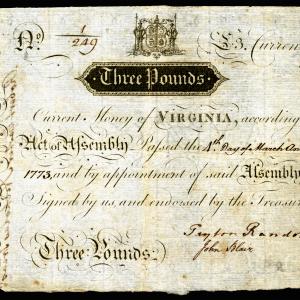 No. 1/249 £3. Curren
Three Pounds.
Current Money of VIRGINIA, according
Act of Assembly Passed the 4th. Day of March An
1773, and by appointment of said Assembly
Signed by us, and endorsed by the Treasur
Three Pounds. Peyton Rando
John Blair